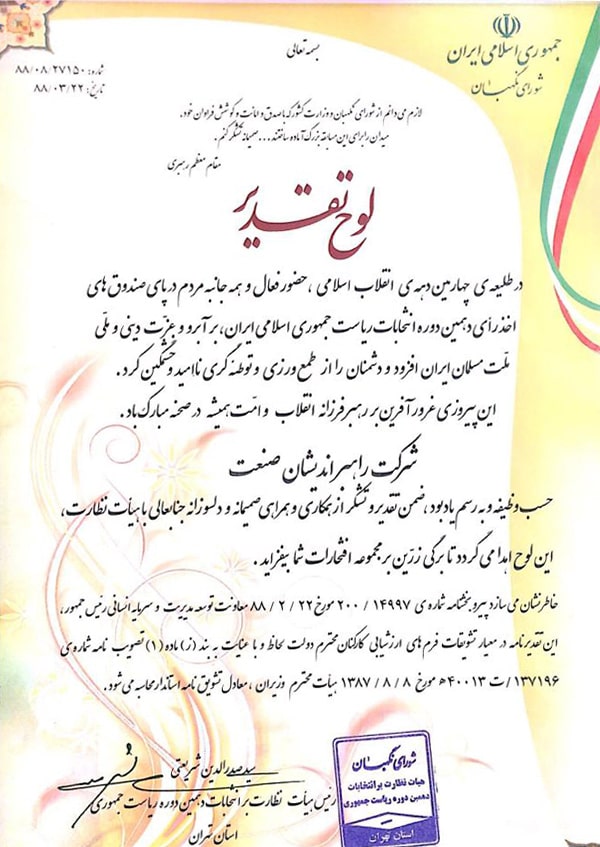 بسمه تعالی
جمهوری اسلامی ایران
شورای نگهبان
شماره: ۸۸/۰۸/۲۷۱۵۰
تاریخ: ۸۸/۰۳/۲۲
لازم می دانم از شورای نگهبان و وزارت کشور که با صدق و امانت و کوشش فراوان خود،
میدان را برای این مسابقه بزرگ آماده ساختند... صمیمانه تشکر کنم.
مقام معظم رهبری
لوح تقدیر
در طلیعه ی چهارمین دهه ی انقلاب اسلامی، حضور فعال و همه جانبه مردم در پای صندوق های
اخذ رأی دهمین دوره انتخابات ریاست جمهوری اسلامی ایران، بر آبرو و عزت دینی و ملی
ملت مسلمان ایران افزود و دشمنان را از طمع ورزی و توطئه گری ناامید و خشمگین کرد.
این پیروزی غرور آفرین بر رهبر فرزانه انقلاب و امت همیشه در صحنه مبارک باد.
شرکت راهبر اندیشان صنعت
حسب وظیفه و به رسم یادبود، ضمن تقدیر و تشکر از همکاری و همراهی صمیمانه و دلسوزانه جنابعالی با هیأت نظارت،
این لوح اهدا می گردد تا برگی زرین بر مجموعه افتخارات شما بیفزاید.
خاطرنشان می سازد پیرو بخشنامه شماره ی ۲۰۰/۱۴۹۹۷ مورخ ۸۸/۲/۲۲ معاونت توسعه مدیریت و سرمایه انسانی رئیس جمهور،
این تقدیرنامه در معیار تشویقات فرم های ارزشیابی کارکنان محترم دولت لحاظ و با عنایت به بند (ز) ماده (۱) تصویب نامه شماره ی
۱۳۷۱۹۶/ت ۴۰۰۱۳ه مورخ ۱۳۸۷/۸/۸ هیأت محترم وزیران، معادل تشویق نامه استاندار محاسبه می شود.
سید صدرالدین شریعتی
رئیس هیأت نظارت بر انتخابات دهمین دوره ریاست جمهوری
استان تهران
شورای نگهبان
هیات نظارت بر انتخابات
دهمین دوره ریاست جمهوری
استان تهران